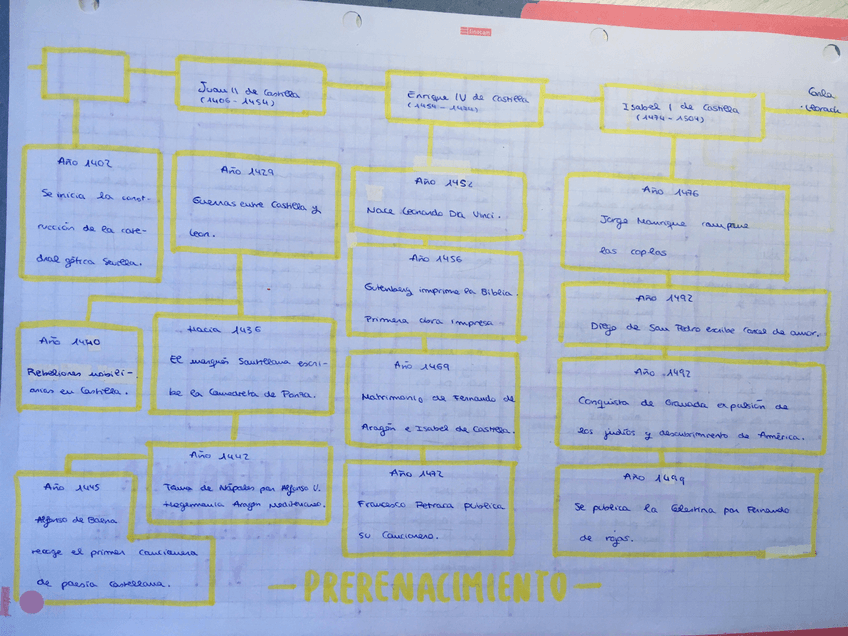 Juan II de Castilla
(1406-1454)
Enrique IV de Castilla
(1454-1474)
Isabel I de Castilla
(1474-1504)
Carla
Año 1402
Se inicia la const-
rucción de la cate-
dral gótica Sevilla.
Año 1429
Guerras entre Castilla y
Leon.
Año 1440
Rebeliones nobili-
arias en Castilla.
Hacia 1436
El marqués Santillana escri-
be la Comedieta de Ponza.
Año 1442
Toma de Nápoles por Alfonso V.
Hegemonía Aragón Mediterraneo.
Año 1445
Alfonso de Baena
recoge el primer cancionero
de poesía castellana.
Año 1452
Nace Leonardo Da Vinci.
Año 1456
Gutenberg imprime la Biblia.
Primera obra impresa
Año 1469
Matrimonio de Fernando de
Aragón e Isabel de Castilla.
Año 1472
Francesco Petrara publica
su Cancionero.
Año 1476
Jorge Manrique compone
las coplas
Año 1492
Diego de San Pedro escribe carcel de amor.
Año 1492
Conquista de Granada expulsión de
los judíos y descubrimiento de América.
Año 1499
Se publica la Celestina por Fernando
de rojas.
- PRERENACIMIENTO -